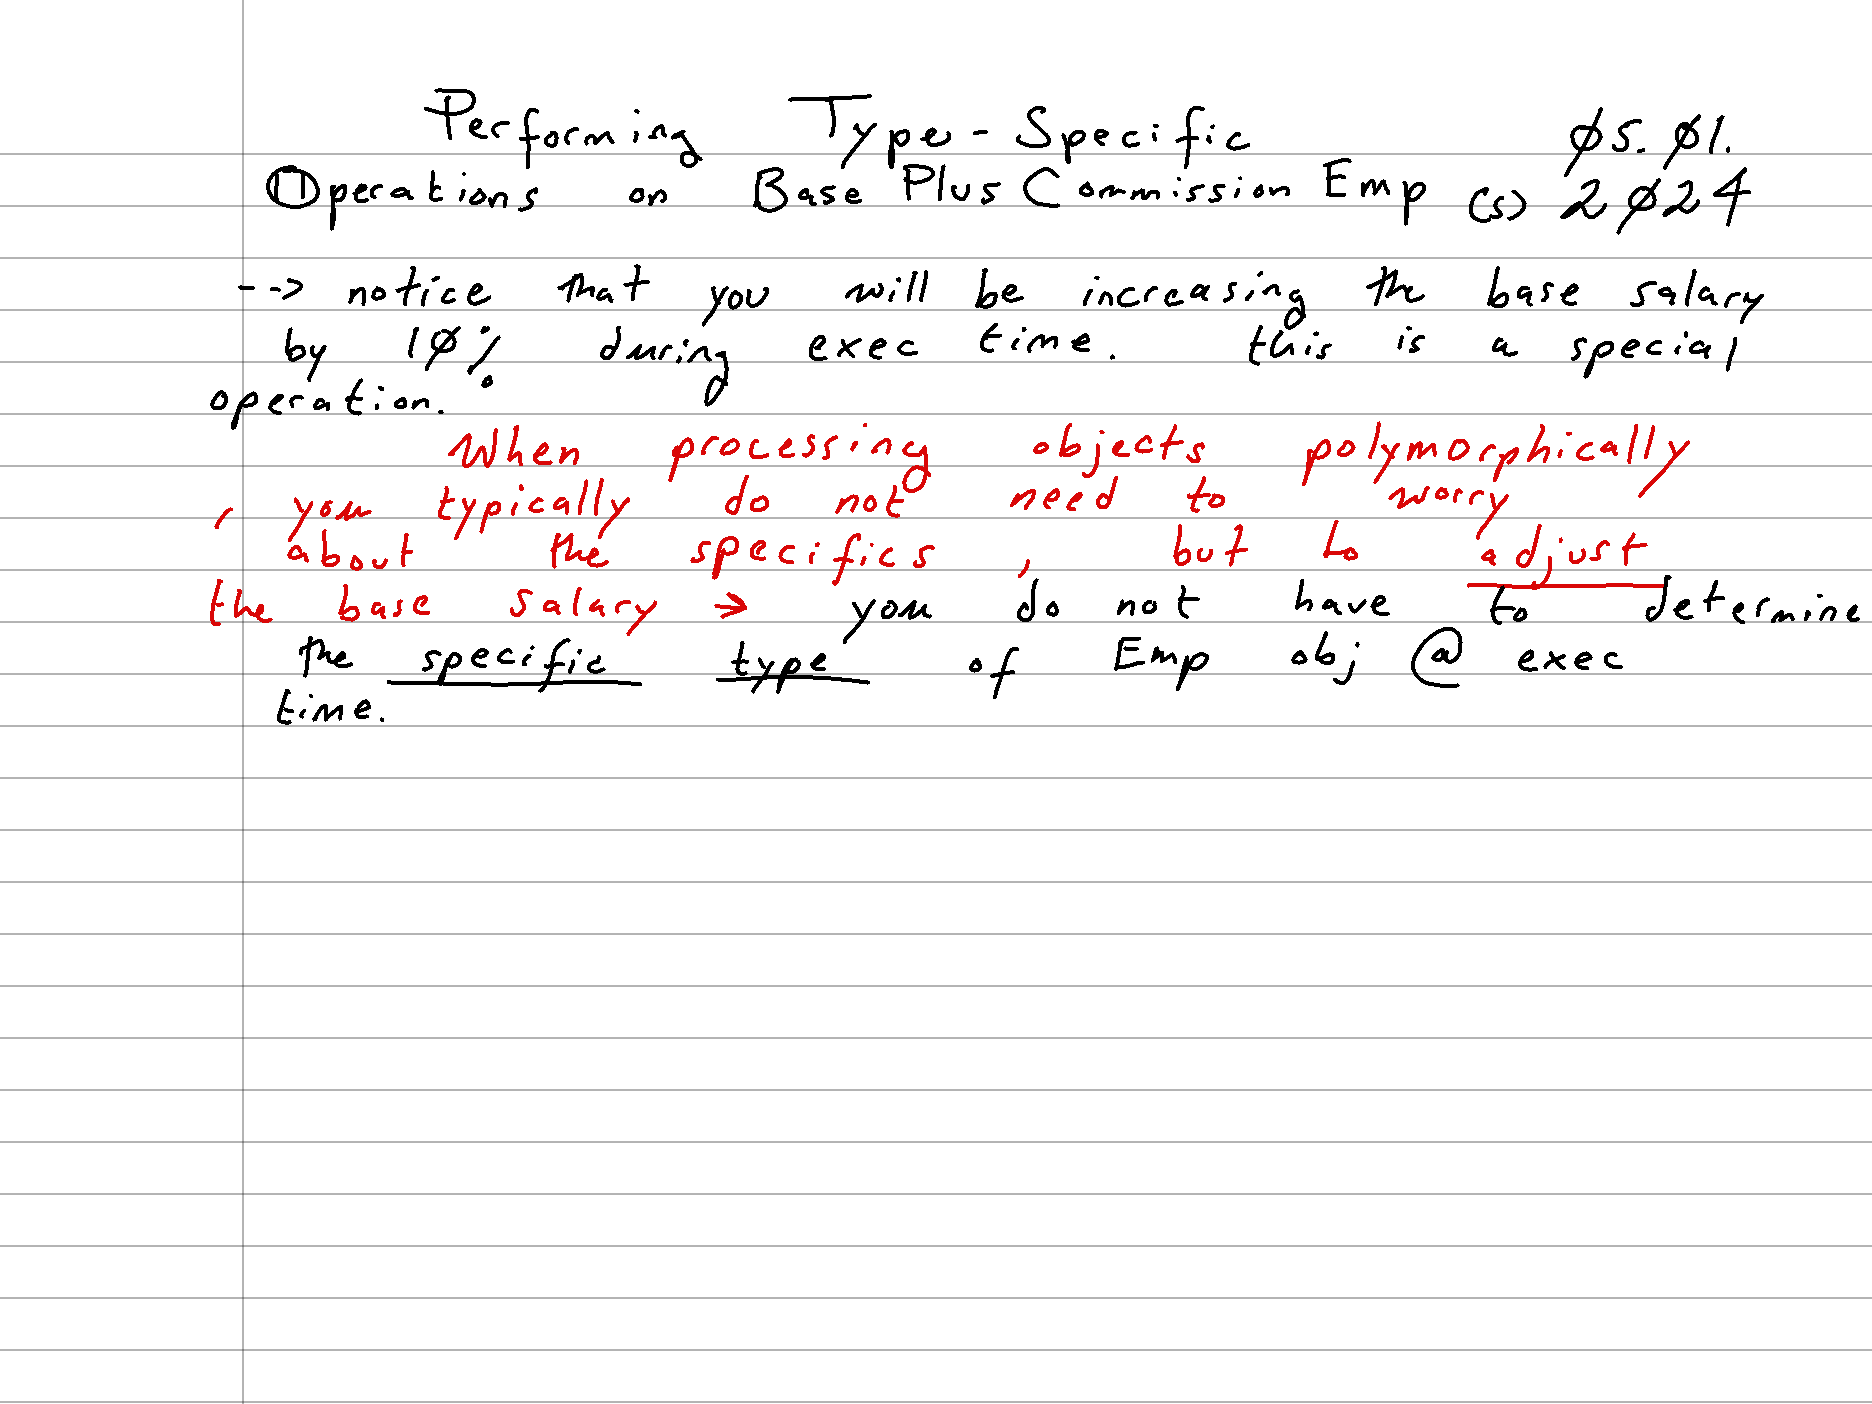 Performing Type-Specific Ø5.Ø1.
Operations on Base Plus Commission Emp (s) 2Ø24
--> notice that you will be increasing the base salary
by 1Ø% during exec time. this is a special
operation.
When processing objects polymorphically
, you typically do not need to worry
about the specifics, but to adjust
the base salary → you do not have to determine
the specific type of Emp obj @ exec
time.